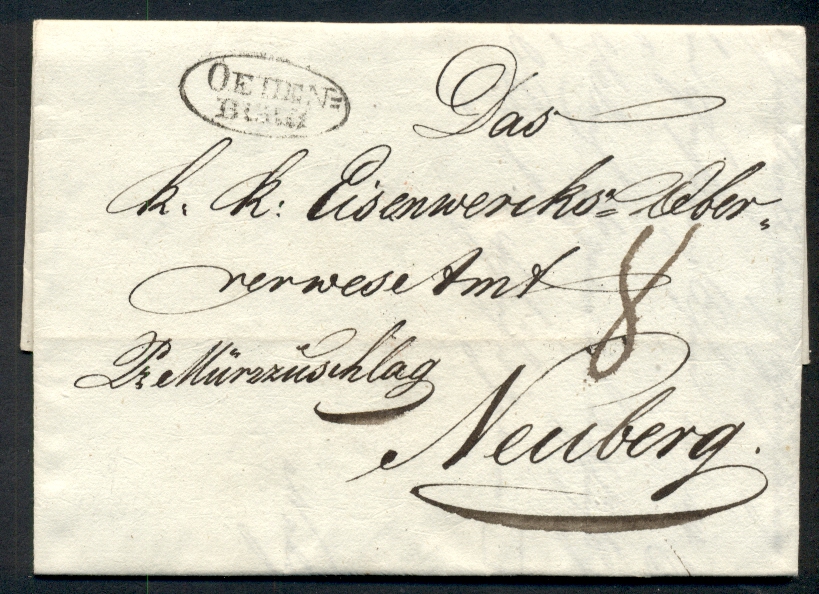 OEDEN=
BURG
Das
k. k: Eisenwercks= Ober=
verweseAmt
8
Pr Mürzzuschlag
Neuberg.